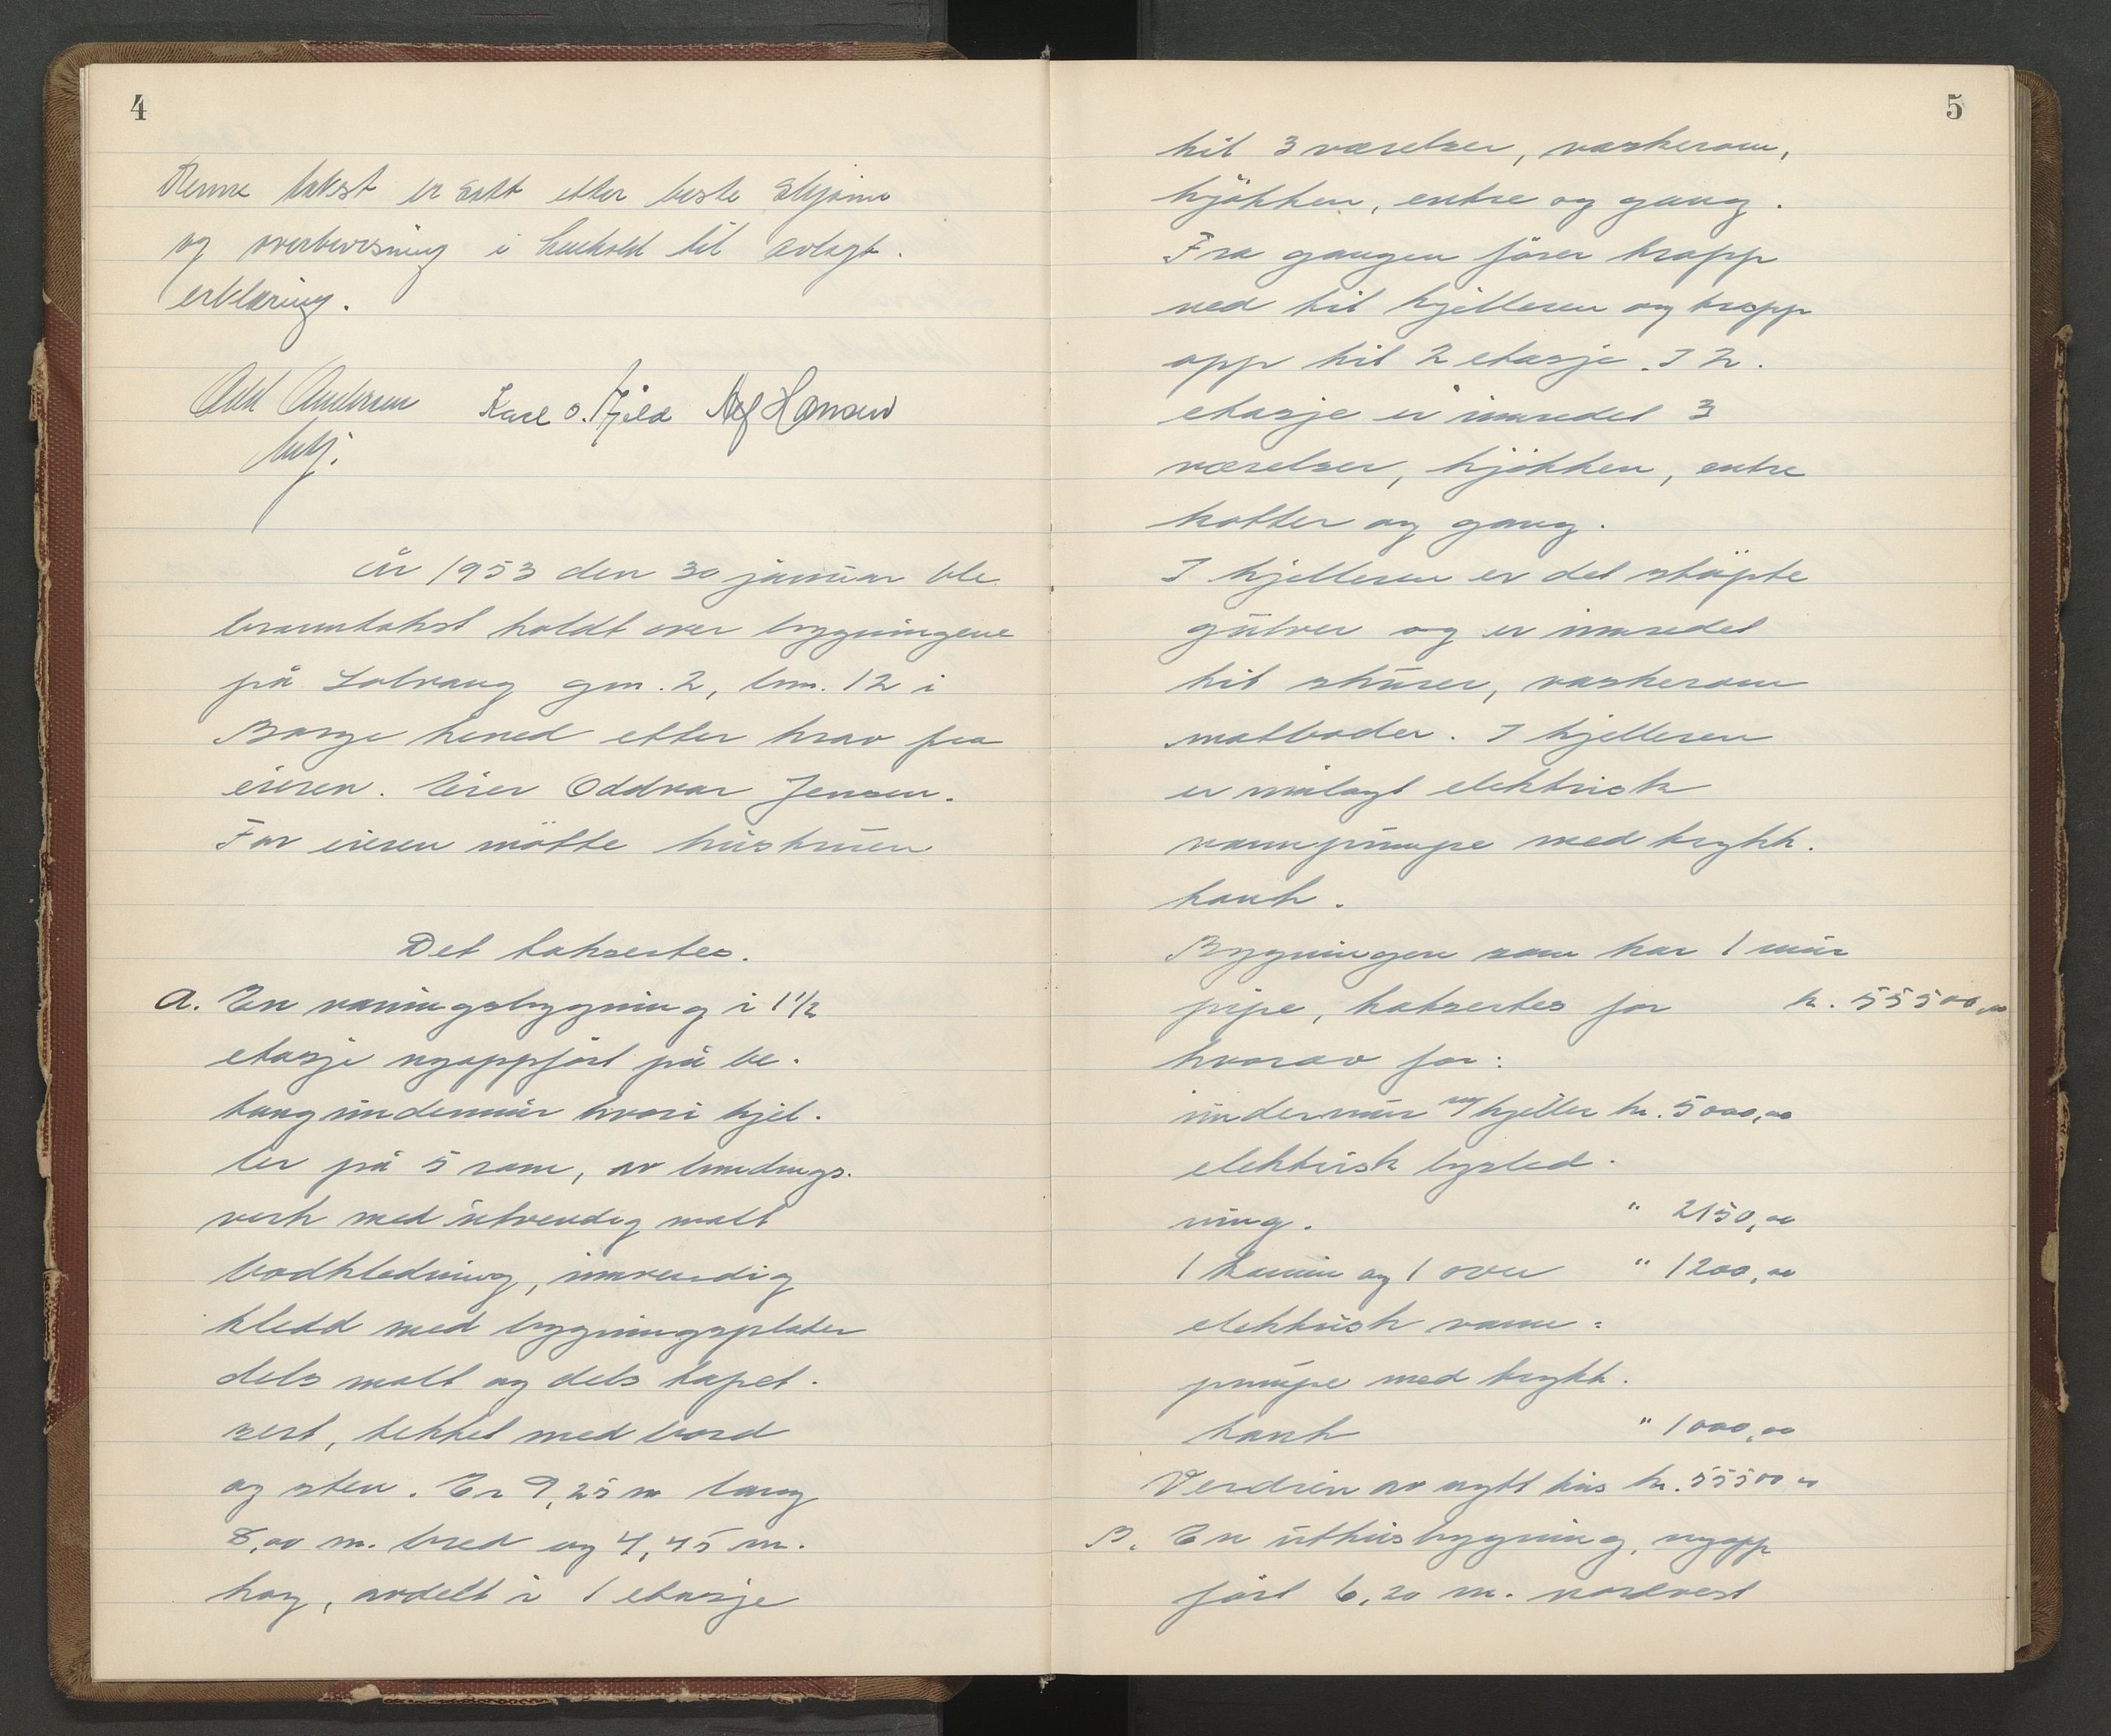 4
Denne takst er satt etter beste skjønn
og overbevisning i henhold til avlagt
erklæring.
Odd Andersen Karl O. Kjild Alf Hansen
år 1953 den 30 januar ble
branntakst holdt over bygningene
på Solvang gnr. 2, bnr. 12 i
Borge herred etter krav fra
eieren. Eier Oddvar Jensen.
For eieren mötte hustruen
Det taksertes.
A. En våningsbygning i 1 1/2
etasje nyoppfört på be-
tong undermur hvori kjel-
ler på 5 rom, av bindings-
verk med utvendig malt
bordkledning, innvendig
kledd med bygningsplater
dels malt og dels tapet-
sert, tekket med bord
og sten. Er 9,25 m lang
8,00 m. bred og 4,45 m.
høy, avdelt i 1 etasje
5
til 3 værelser, vaskerom,
kjökken, entre og gang.
Fra gangen förer trapp
ned til kjelleren og trapp
opp til 2 etasje. I 2.
etasje er innredet 3
værelser, kjökken, entre
kotter og gang.
I kjelleren er det stöpte
gulver og er innredet
til stuer, vaskerom
matboder. I kjelleren
er innlagt elektrisk
vannpumpe med trykk-
tank.
Bygningen som har 1 mur
pipe, taksertes for kr. 55500,00
hvorav for:
undermur m/kjeller kr. 5000,00
elektrisk lysled-
ning. " 2150,00
1 kamin og 1 ovn " 1200,00
elektrisk vann=
pumpe med trykk-
tank " 1000,00
Verdien av nytt hus kr. 55500 00
B. En uthusbygning, nyopp
fört 6,20 m. nordvest